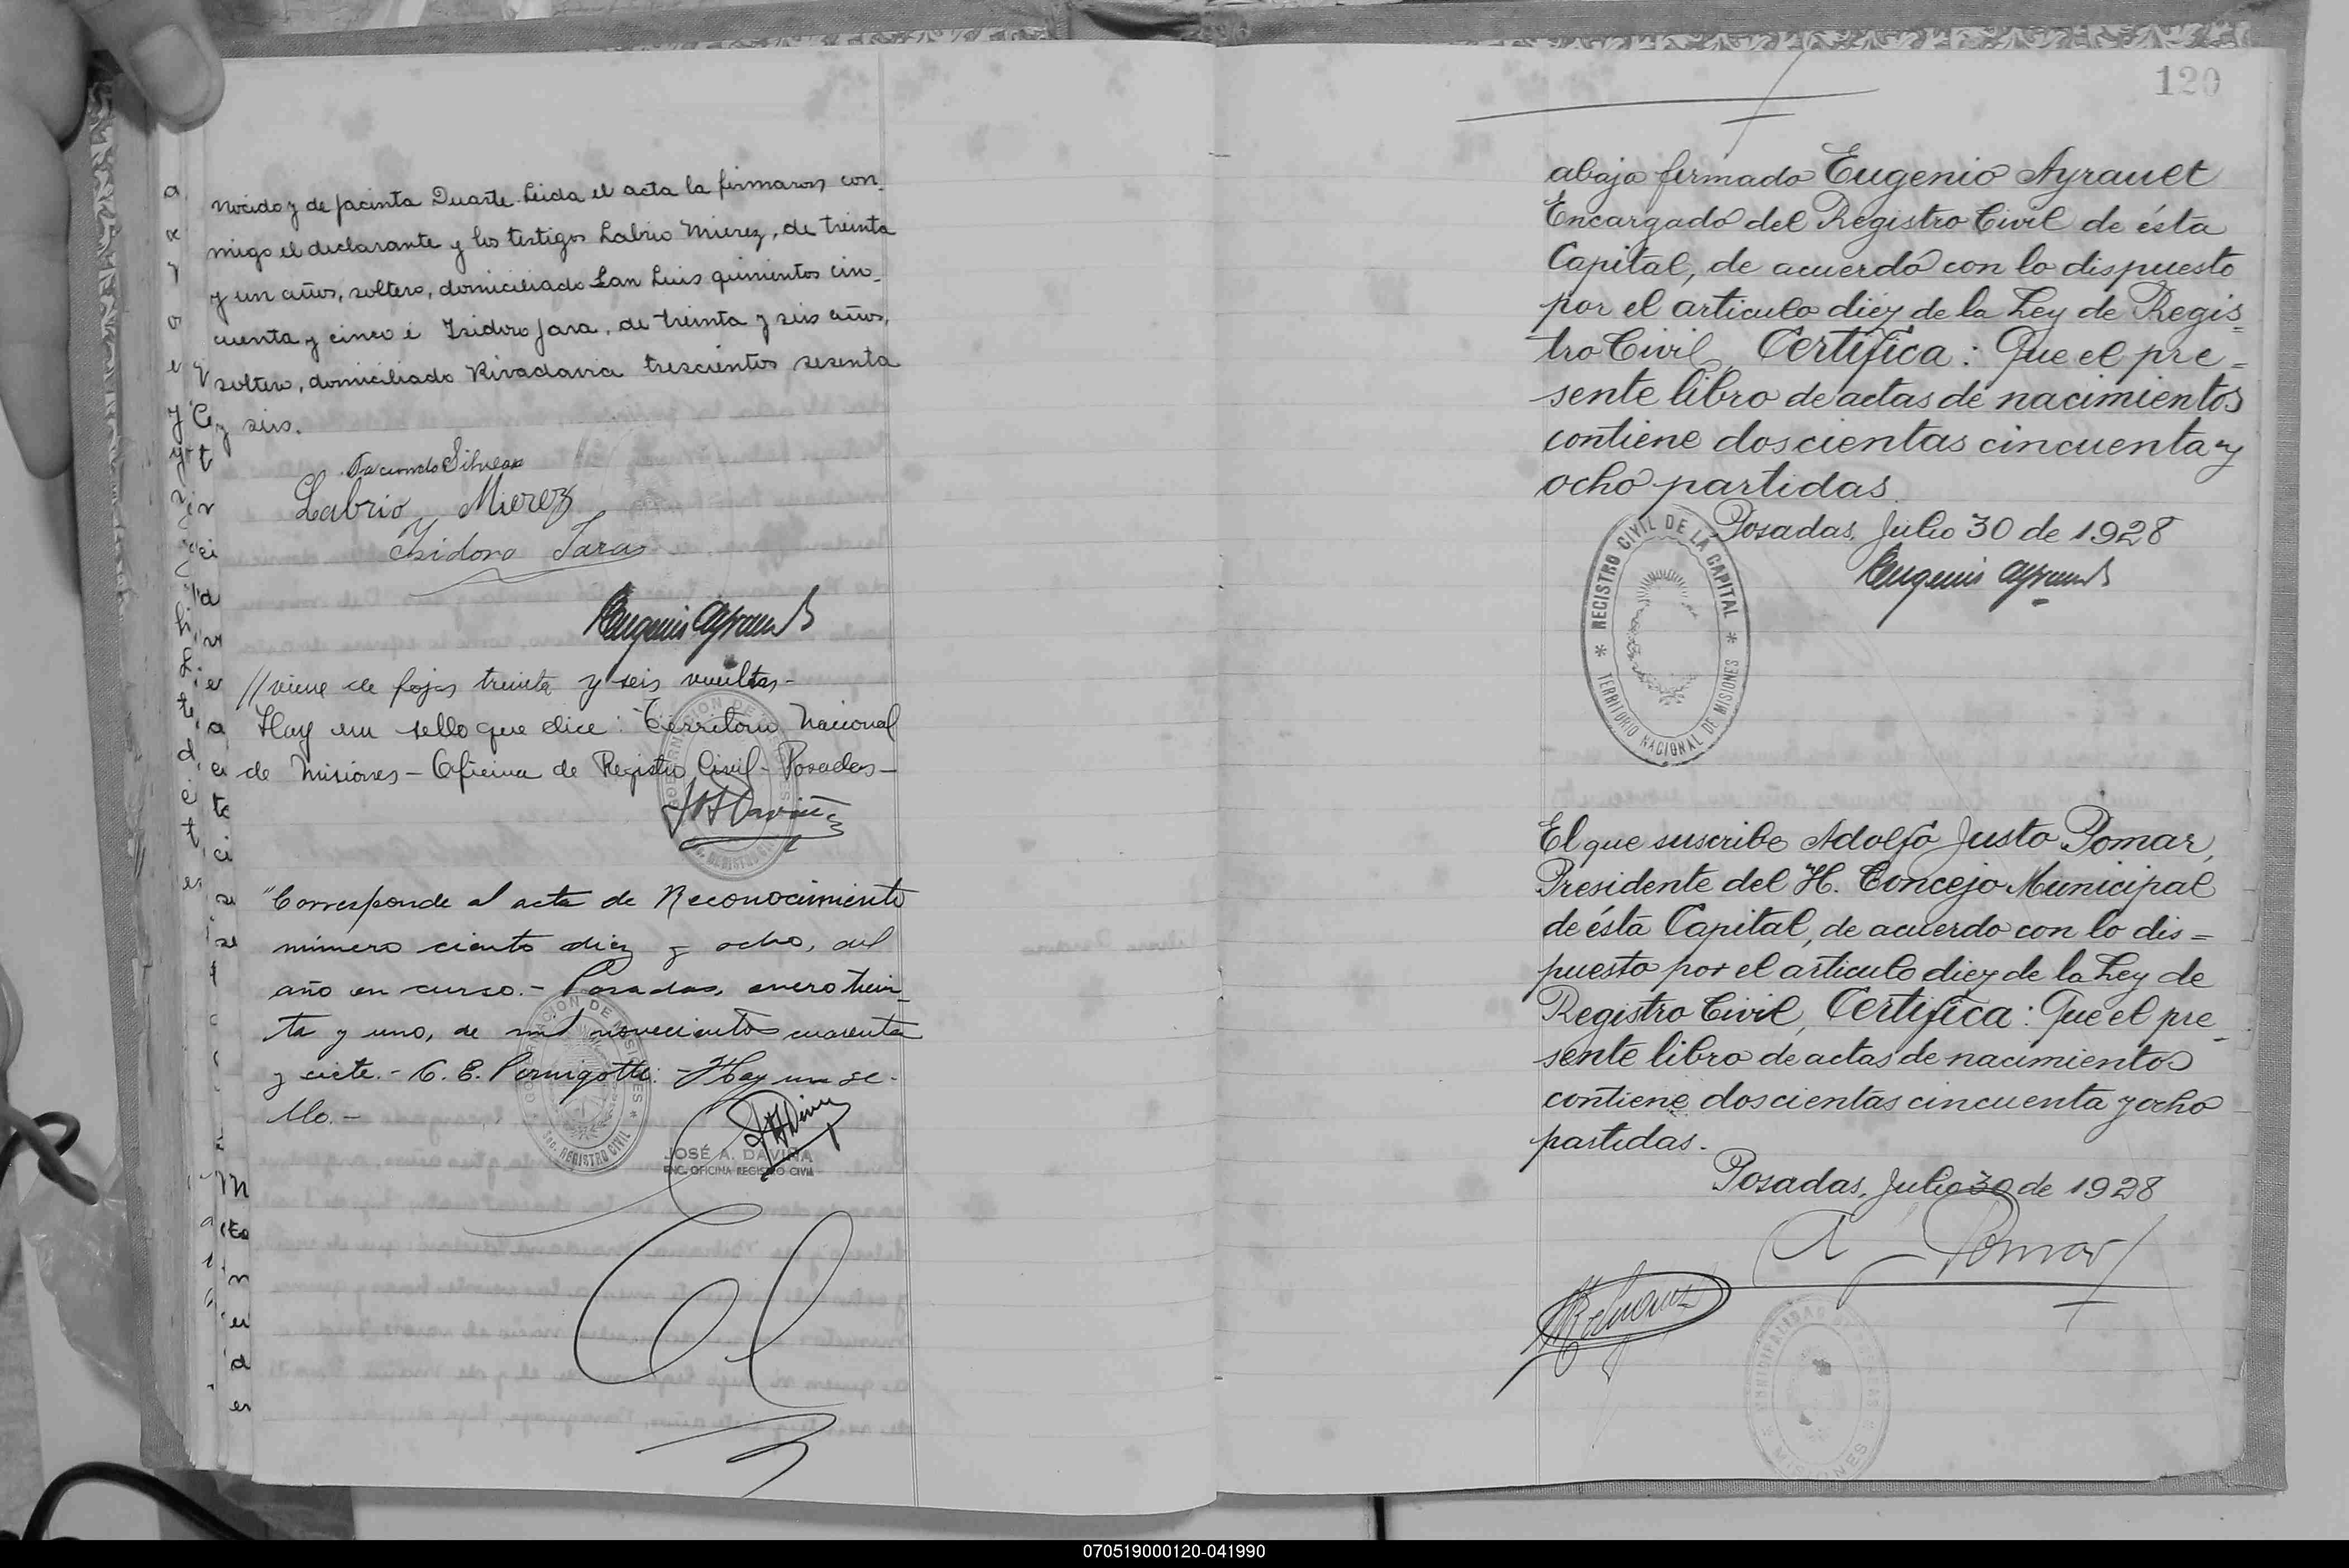 nocido y de Jacinta Duarte. Leida el acta la firmaron con-
migo el declarante y los testigos Labrio Mierez, de treinta
y un años, soltero, domiciliado San Luis quinientos cin-
cuenta y cinco é Isidoro Jara, de treinta y seis años,
soltero, domiciliado Rivadavia trescientos sesenta
y seis.
Facundo Silvera
Labrio Mierez
Isidoro Jara
Eugenio Ayrauet
//viene de fojas treinta y seis vueltas-
Hay un sello que dice: Territorio Nacional
de Misiones - Oficina de Registro Civil - Posadas -
"Corresponde al acta de Reconocimiento
número ciento diez y ocho, del
año en curso. - Posadas, enero trein-
ta y uno, de mil novecientos cuarenta
y siete. - C. E. Pernigotti. - Hay un se-
llo. -
GOBERNACION DE MISIONES
SEC. REGISTRO CIVIL
JOSÉ A. DAVIÑA
ENC. OFICINA REGISTRO CIVIL
120
abajo firmado Eugenio Ayrauet
Encargado del Registro Civil de ésta
Capital, de acuerdo con lo dispuesto
por el articulo diez de la Ley de Regis=
tro Civil, Certifica: Que el pre=
sente libro de actas de nacimientos
contiene doscientas cincuenta y
ocho partidas.
Posadas, Julio 30 de 1928
Eugenio Ayrauet
REGISTRO CIVIL DE LA CAPITAL
TERRITORIO NACIONAL DE MISIONES
El que suscribe Adolfo Justo Pomar,
Presidente del H. Concejo Municipal
de ésta Capital, de acuerdo con lo dis=
puesto por el articulo diez de la Ley de
Registro Civil, Certifica: Que el pre-
sente libro de actas de nacimientos
contiene doscientas cincuenta y ocho
partidas.
Posadas, Julio 30 de 1928
A J Pomar
MISIONES
070519000120-041990